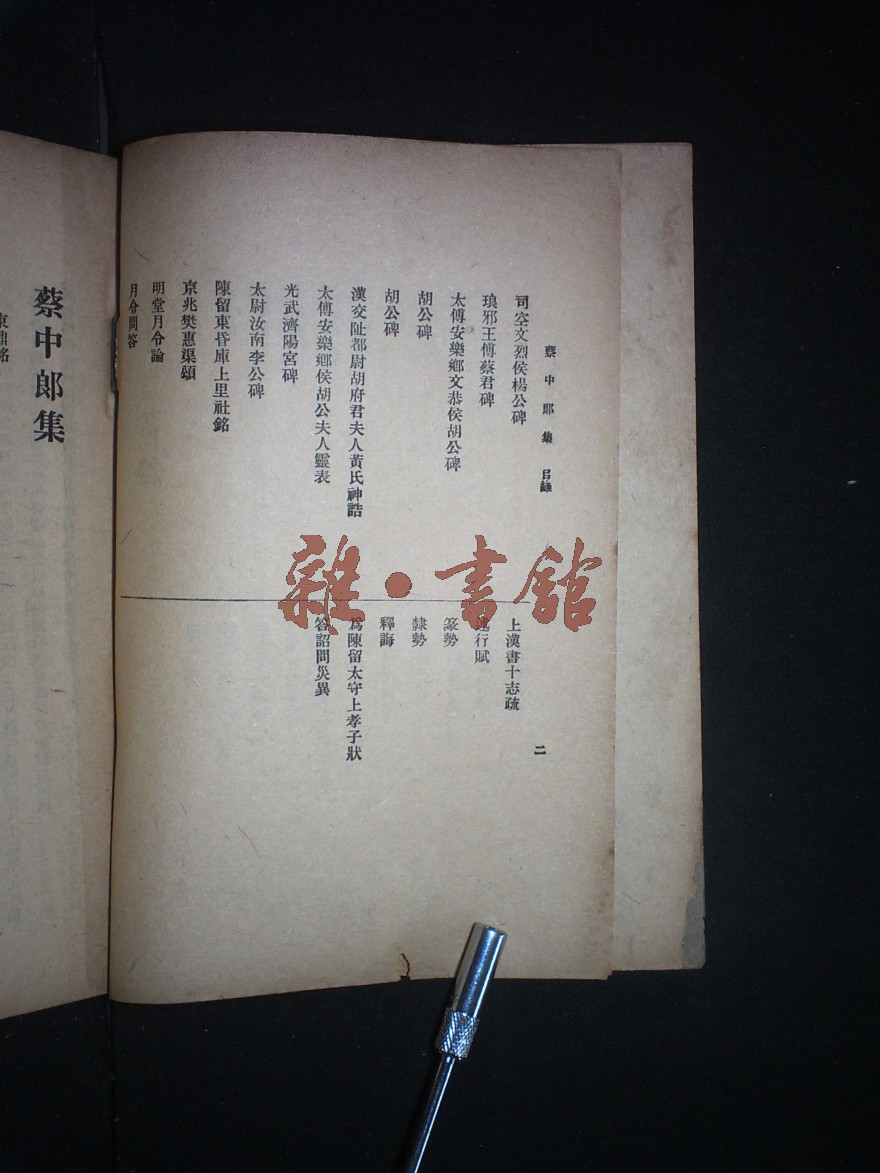 蔡中郎集 目錄
二
司空文烈侯楊公碑
琅邪王傅蔡君碑
太傅安樂鄉文恭侯胡公碑
胡公碑
胡公碑
漢交阯都尉胡府君夫人黃氏神誥
太傅安樂鄉侯胡公夫人靈表
光武濟陽宮碑
太尉汝南李公碑
陳留東昏庫上里社銘
京兆樊惠渠頌
明堂月令論
月令問答
上漢書十志疏
述行賦
篆勢
隸勢
釋誨
為陳留太守上孝子狀
答詔問災異
雜·書館
蔡中郎集
東鼎銘